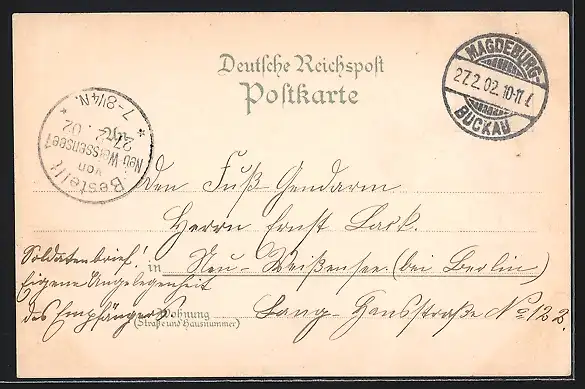 Deutsche Reichspost
Postkarte
MAGDEBURG-
27.2.02.10-11V.
BUCKAU
Bestellt
von
Neu Weissensee1
27.2.02
7-8¼N.
Den Fuß-Gendarm
Herrn Ernst Lack.
in Neu-Weißensee (bei Berlin)
Soldatenbrief!
Eigene Angelegenheit
des Empfängers
Wohnung
(Straße und Hausnummer)
Lang-Hansstraße No 122.